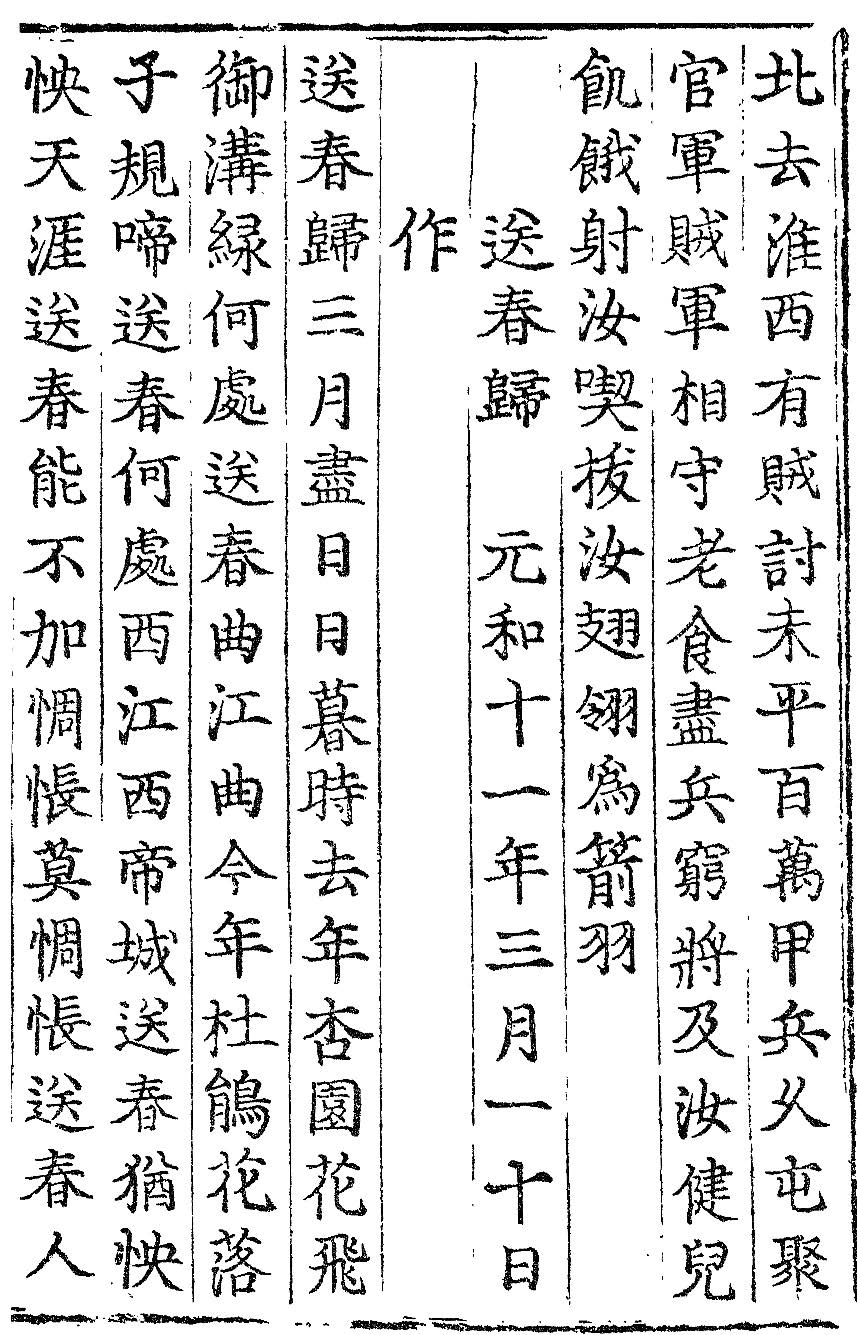 北去淮西有賊討未平百萬甲兵乆屯聚
官軍賊軍相守老食盡兵窮將及汝健兒
飢餓射汝喫拔汝翅翎爲箭羽
送春歸　元和十一年三月一十日
作
送春歸三月盡日日暮時去年杏園花飛
御溝緑何處送春曲江曲今年杜鵑花落
子規啼送春何處西江西帝城送春猶怏
怏天涯送春能不加惆悵莫惆悵送春人